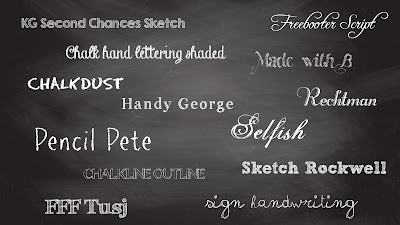 KG Second Chances Sketch
Freebooter Script
Chalk hand lettering shaded
Made with B
CHALKDUST
Handy George
Rechtman
Pencil Pete
Selfish
CHALKLINE OUTLINE
Sketch Rockwell
FFF Tusj
sign handwriting